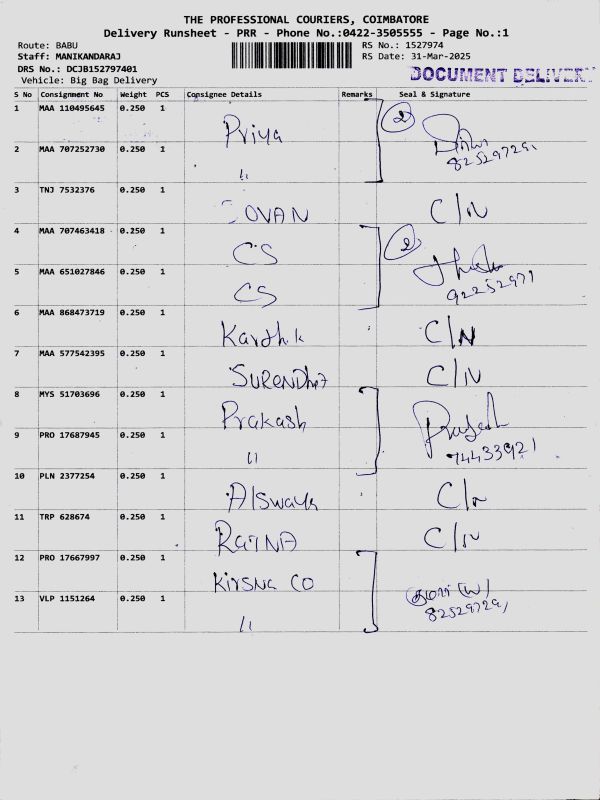 THE PROFESSIONAL COURIERS, COIMBATORE
Delivery Runsheet - PRR - Phone No.:0422-3505555 - Page No.:1
Route: BABU RS No.: 1527974
Staff: MANIKANDARAJ RS Date: 31-Mar-2025
DRS No.: DCJB152797401 DOCUMENT DELIVERY
Vehicle: Big Bag Delivery
S No Consignment No Weight PCS Consignee Details Remarks Seal & Signature
1 MAA 110495645 0.250 1 Priya 2
2 MAA 707252730 0.250 1 " 825297291
3 TNJ 7532376 0.250 1 OVAN C/N
4 MAA 707463418 0.250 1 CS 2
5 MAA 651027846 0.250 1 CS 92252971
6 MAA 868473719 0.250 1 Karthik C/N
7 MAA 577542395 0.250 1 SURENDHAR C/N
8 MYS 51703696 0.250 1 Prakash
9 PRO 17687945 0.250 1 " 74433921
10 PLN 2377254 0.250 1 C/N
11 TRP 628674 0.250 1 RATNA C/N
12 PRO 17667997 0.250 1 Kirsna CO
13 VLP 1151264 0.250 1 " 825297291